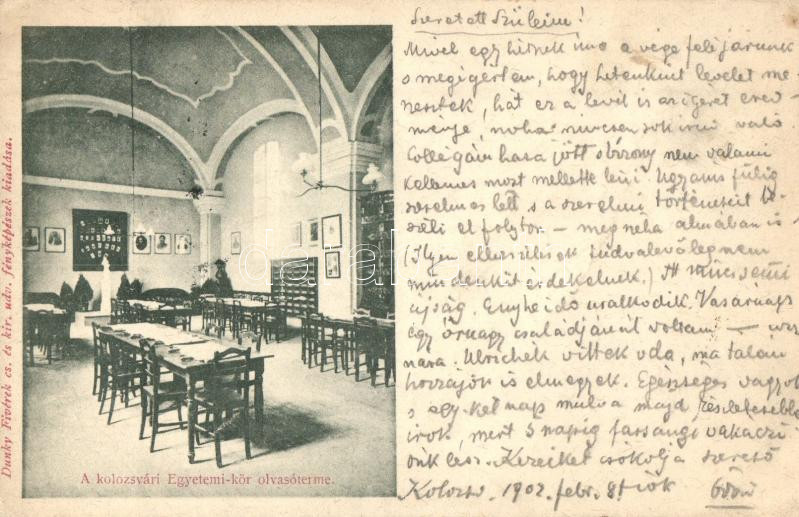 Szeretett Szüleim!
Mivel egy hétnek ime a vége felé járunk
s megigértem, hogy hetenkint levelet me-
nesztek, hát ez a levél is az igéret ered-
ménye, noha nincsen sok irni való
Collegám haza jött s bizony nem valami
kellemes most mellette lenni. Ugyanis fülig
szerelmes lett s a szerelmi történeteit
meséli el folyton — még néha álmában is
(Ilyen ellenállások tudvalevőleg nem
mindenkit érdekelnek.) It nincs semmi
újság. Enyhe idő uralkodik. Vasárnap
egy őrnagy családjánál voltam —
Ulrichék vittek oda, ma talán
hozzájok is elmegyek. Egészséges vagyok
s egy-két nap mulva majd részletesebben
irok, mert 3 napig farsangi vakáczi-
ónk lesz. Kezeiket csókolja szerető
Kolozsv. 1902. febr. 8. fiok Ödön
A kolozsvári Egyetemi-kör olvasóterme.
Dunky Fivérek cs. és kir. udv. fényképészek kiadása.